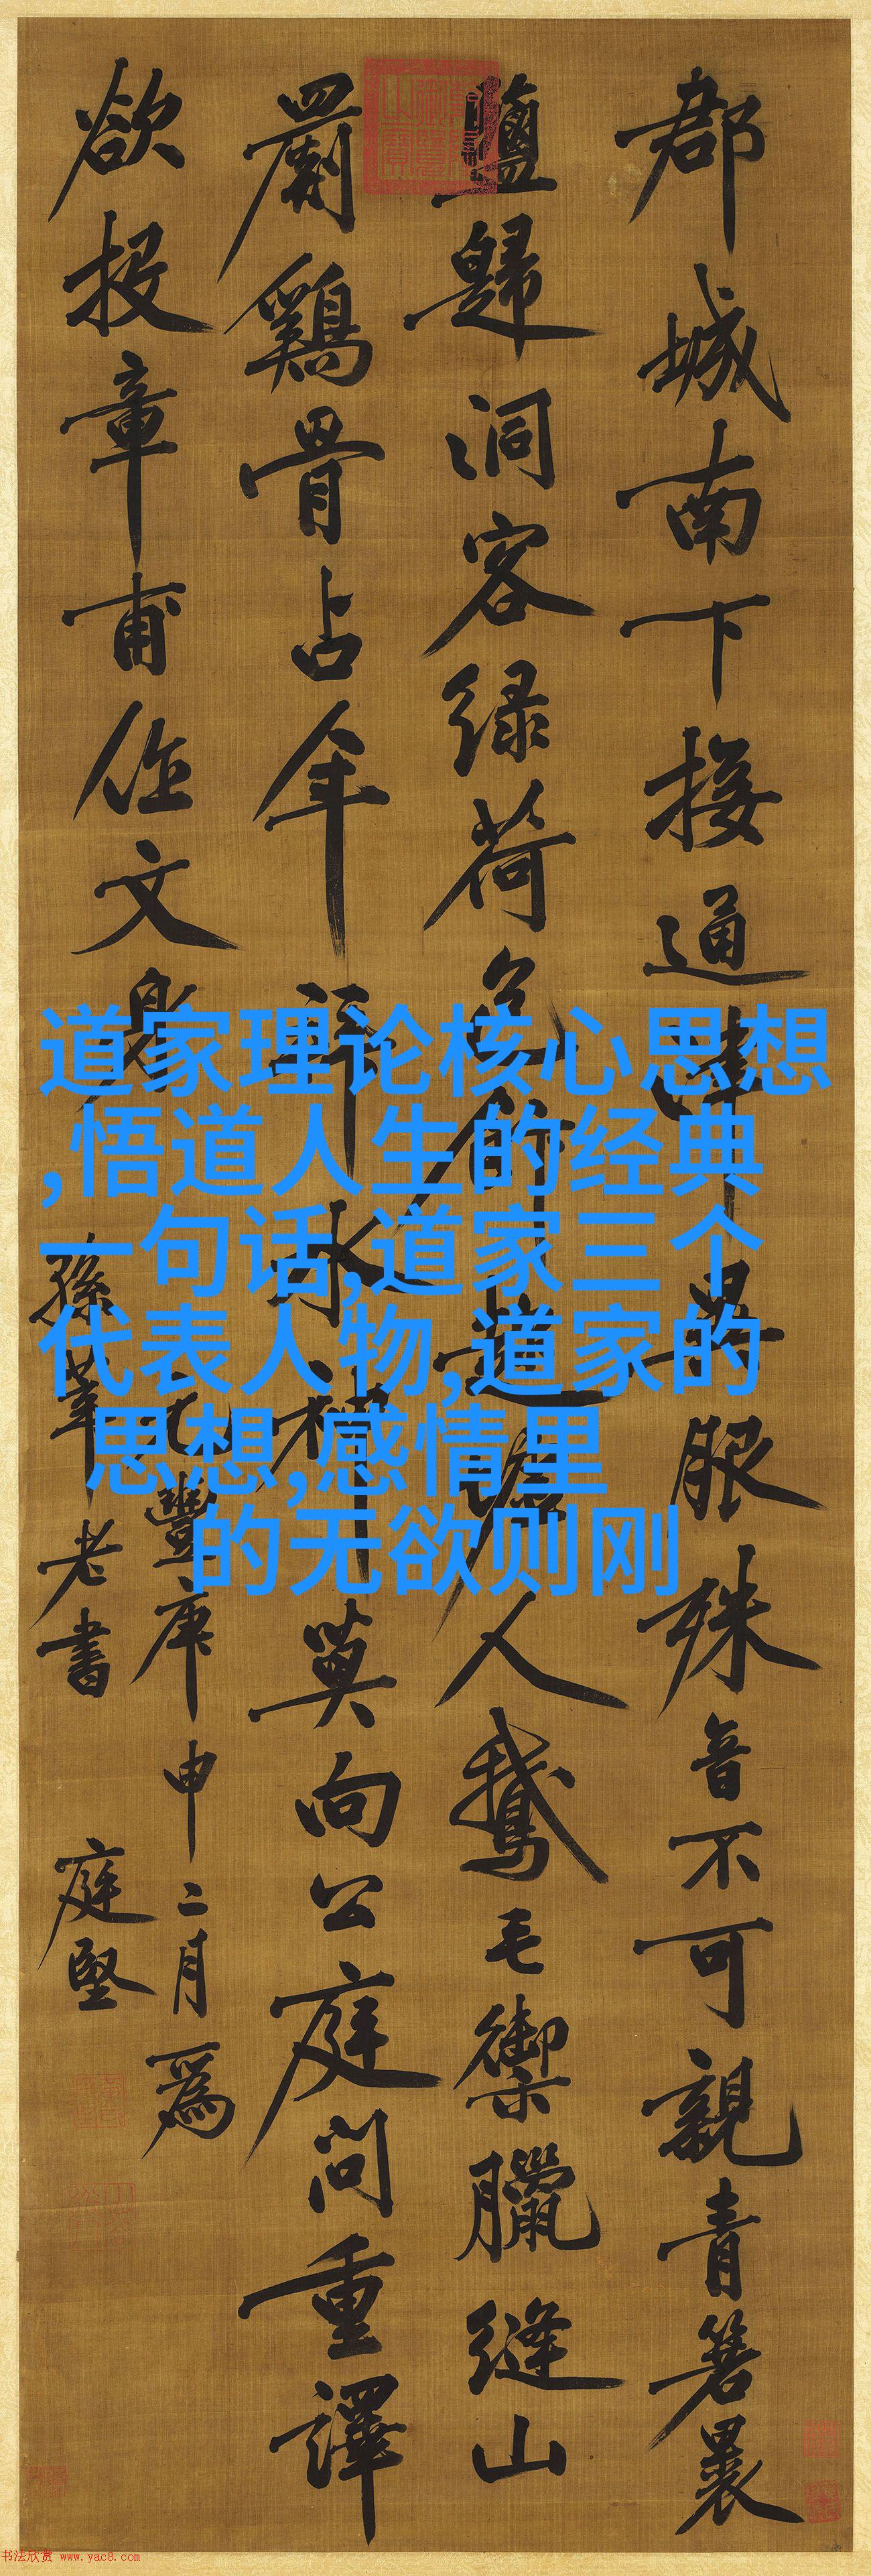 道家理论核心思想
,悟道人生的经典
一句话,道家三个
代表人物,道家的
思想,感情里
的无欲则刚
郡城南下接通津異服殊音不可親青箬裹
鹽歸洞客緑荷包飯趁虛人鵝毛禦臘縫山
罽鷄骨占年拜水神莫向公庭問重譯
欲投章甫作文身
元豐庚申二月爲
孫莘老書 庭堅
书法欣赏 www.yac8.com